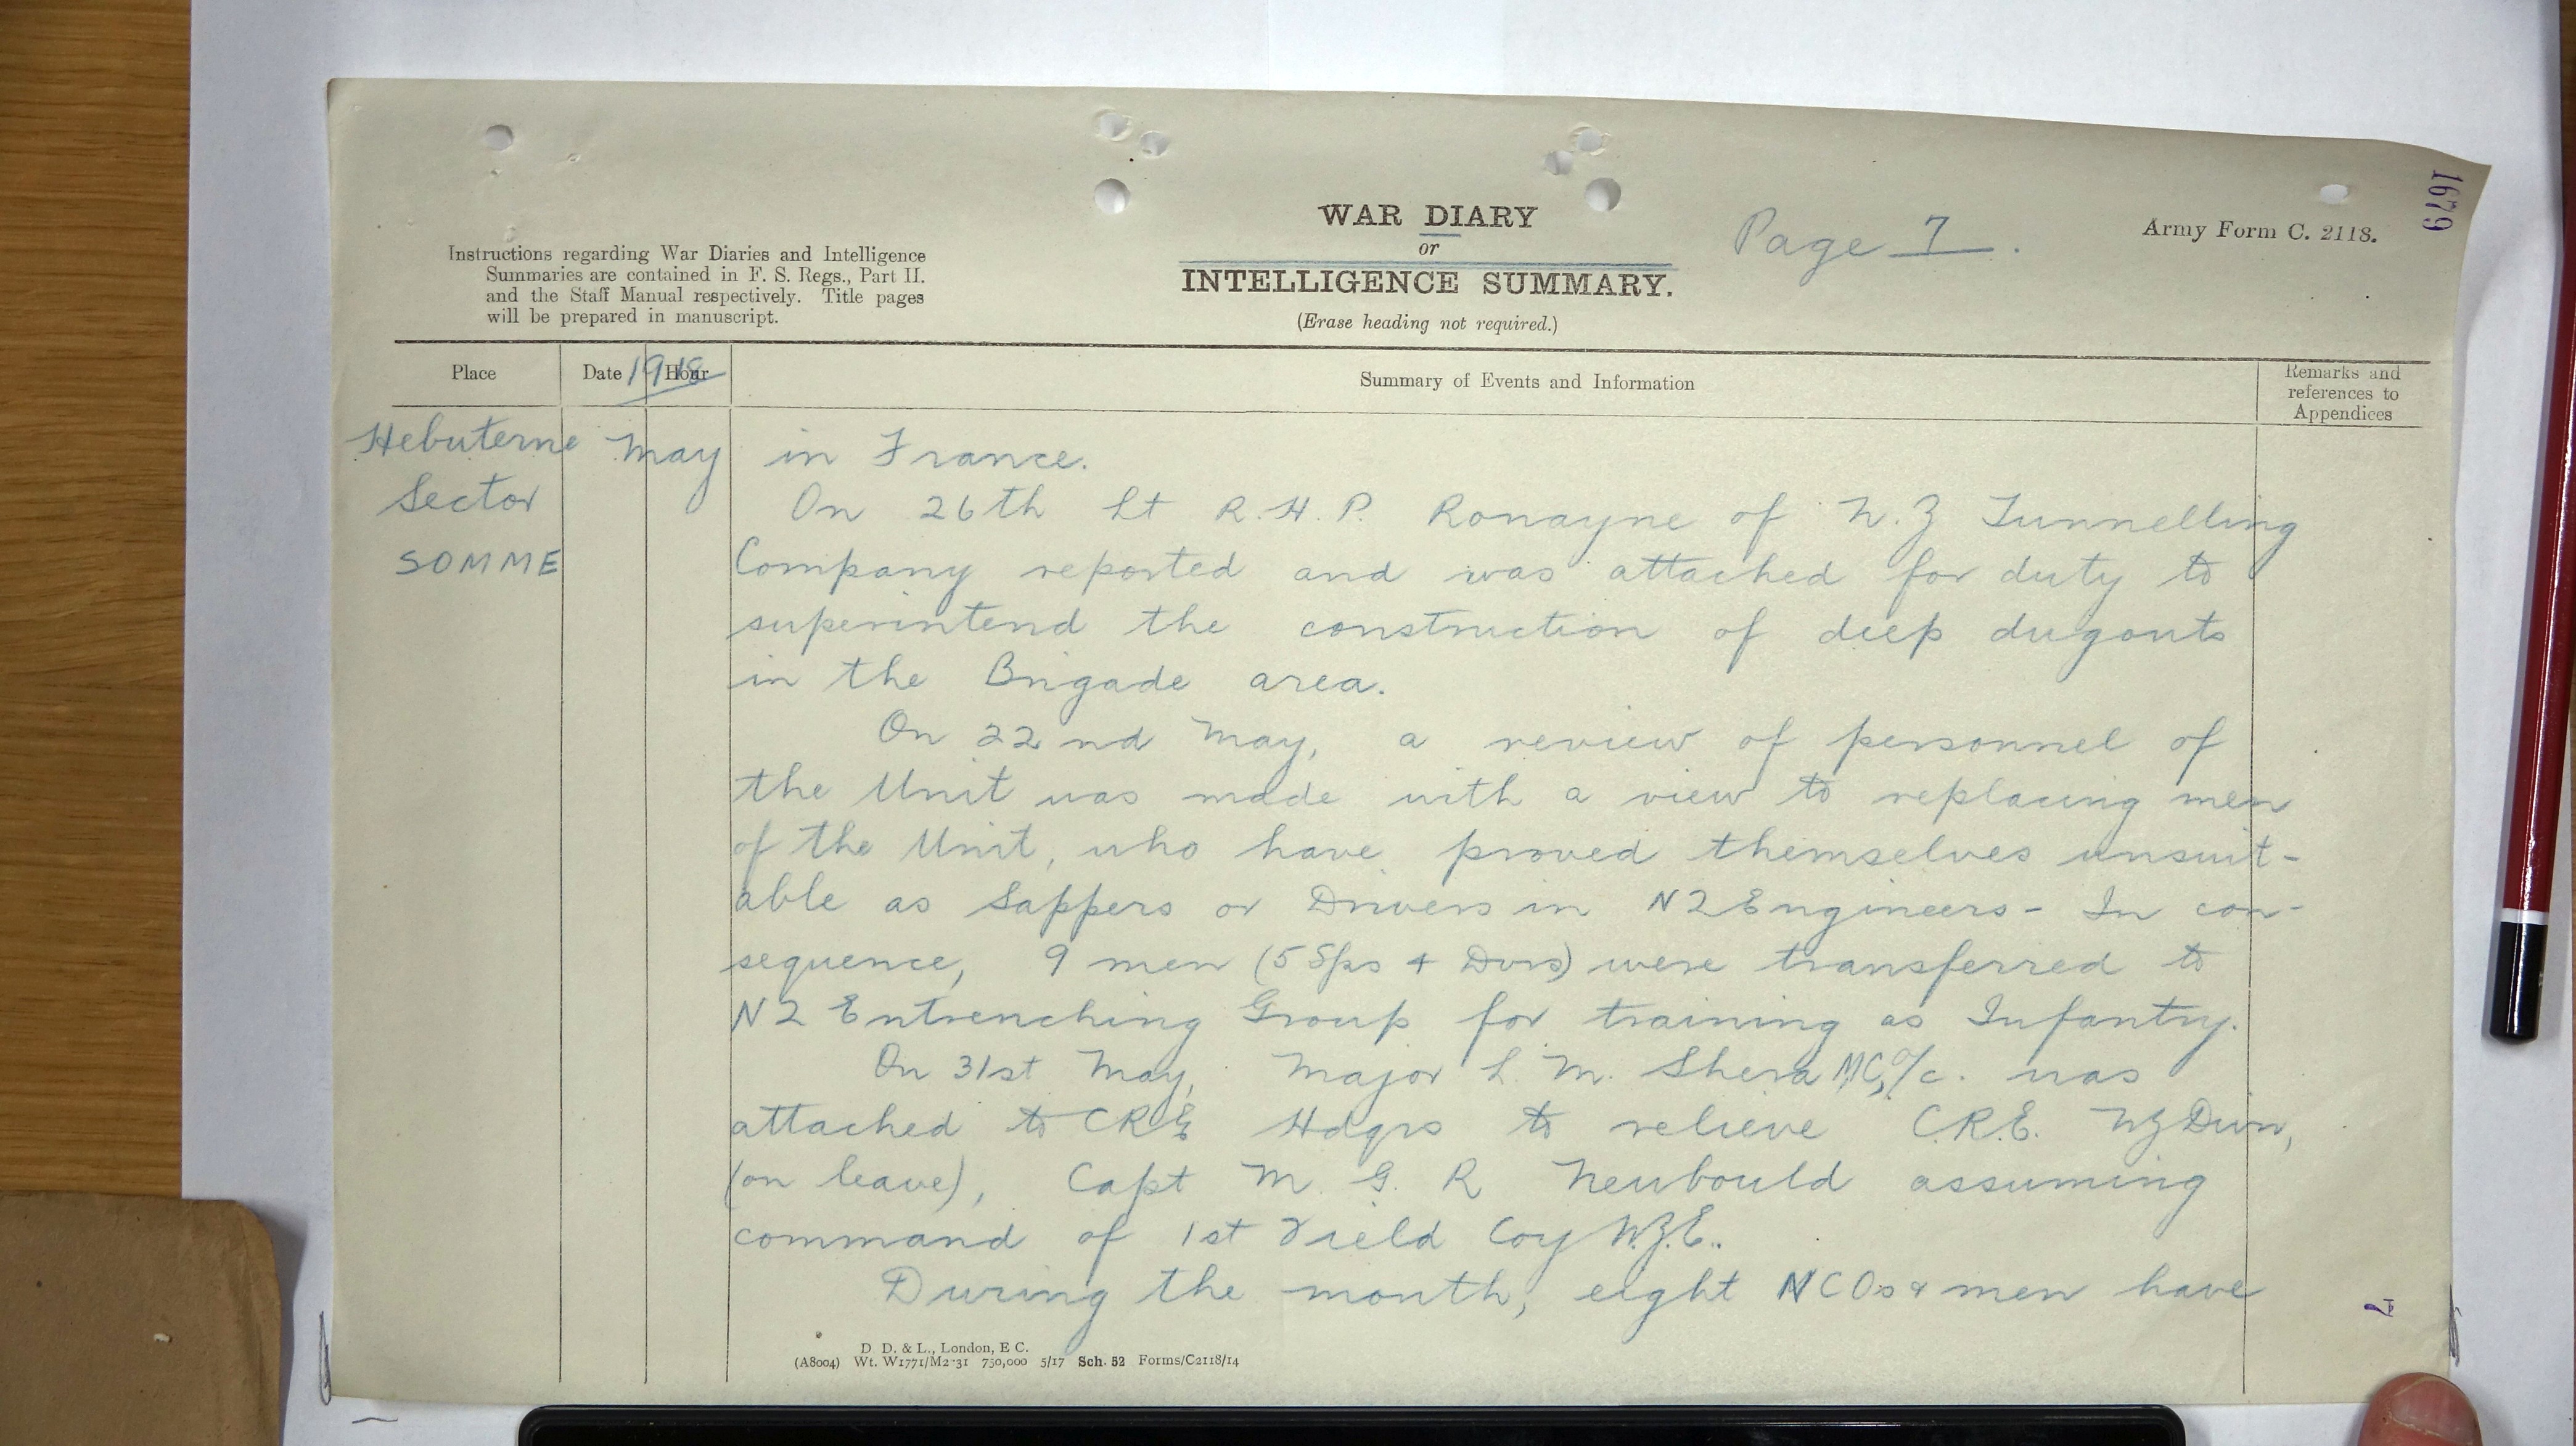 1679
WAR DIARY
or
INTELLIGENCE SUMMARY.
(Erase heading not required.)
Page 7.
Army Form C. 2118.
Instructions regarding War Diaries and Intelligence
Summaries are contained in F. S. Regs., Part II.
and the Staff Manual respectively. Title pages
will be prepared in manuscript.
Place Date 1918 Hour Summary of Events and Information Remarks and
references to
Appendices
Hebuterne May in France.
Sector On 26th Lt R. H. P. Ronayne of N.Z Tunnelling
SOMME Company reported and was attached for duty to
superintend the construction of deep dugouts
in the Brigade area.
On 22nd May, a review of personnel of
the Unit was made with a view to replacing men
of the Unit, who have proved themselves unsuit-
able as Sappers or Drivers in NZ Engineers - In con-
sequence, 9 men (5 Sprs + Dvrs) were transferred to
NZ Entrenching Group for training as Infantry.
On 31st May, Major L. M. Shera MC, o/c. was
attached to CRE Hdqrs to relieve C.R.E. NZ Divn,
(on leave), Capt M. G. R Newbould assuming
command of 1st Field Coy N.Z.E..
During the month, eight NCOs & men have
7
D D. & L., London, E C.
(A8004) Wt. W1771/M2 31 750,000 5/17 Sch. 52 Forms/C2118/14